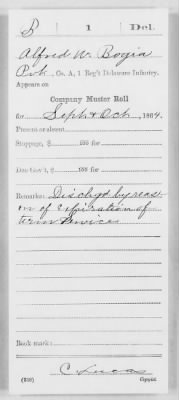 B 1 Del.
Alfred W. Bogia
Pvt., Co. A, 1 Reg't Delaware Infantry.
Appears on
Company Muster Roll
for Sept & Oct, 1864.
Present or absent
Stoppage, $ 100 for
Due Gov't, $ 100 for
Remarks: Dischgd by reas
on of expiration of
term service
Book mark:
C. Lucas
(358) Copyist.